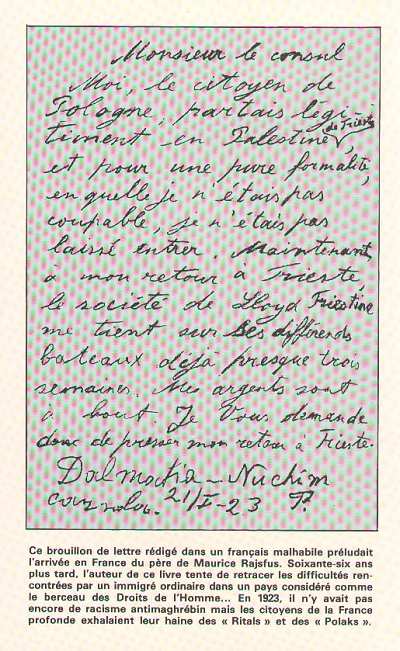 Monsieur le consul
Moi, le citoyen de
Pologne, partais légi-
timent en Palestine, de Trieste
et pour une pure formalité,
en quelle je n'étais pas
coupable, je n'étais pas
laissé entrer. Maintenant,
à mon retour à Trieste,
le société de Lloyd Triestina
me tient sur ses différents
bateaux déjà presque trois
semaines. Mes argents sont
à bout. Je Vous demande
donc de presser mon retour à Trieste.
Dalmatia - Nuchim
21/I-23
Ce brouillon de lettre rédigé dans un français malhabile préludait
l'arrivée en France du père de Maurice Rajsfus. Soixante-six ans
plus tard, l'auteur de ce livre tente de retracer les difficultés ren-
contrées par un immigré ordinaire dans un pays considéré comme
le berceau des Droits de l'Homme... En 1923, il n'y avait pas
encore de racisme antimaghrébin mais les citoyens de la France
profonde exhalaient leur haine des « Ritals » et des « Polaks ».